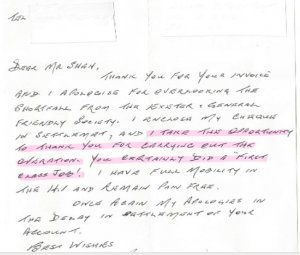 TEL
DEAR MR SHAH,
THANK YOU FOR YOUR INVOICE
AND I APOLOGISE FOR OVERLOOKING THE
SHORTFALL FROM THE EXETER & GENERAL
FRIENDLY SOCIETY. I ENCLOSE MY CHEQUE
IN SETTLEMENT, AND I TAKE THE OPPORTUNITY
TO THANK YOU FOR CARRYING OUT THE
OPERATION. YOU CERTAINLY DID A 'FIRST
CLASS JOB'. I HAVE FULL MOBILITY IN
THE AND REMAIN PAIN FREE.
ONCE AGAIN MY APOLOGIES IN
THE DELAY IN SETTLEMENT OF YOUR
ACCOUNT.
BEST WISHES